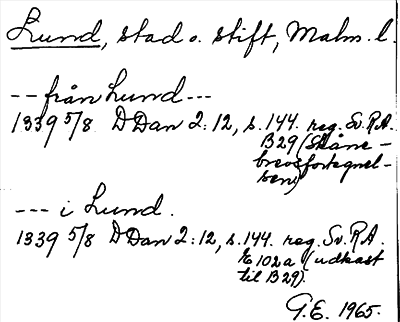 Lund, stad o. stift, Malm. l.
-- från Lund ---
1339 5/8 DDan 2:12, s. 144. reg. Sv. R.A.
B29 (Skåne-
brevsfortegnel-
sen)
--- i Lund.
1339 5/8 DDan 2:12, s. 144. reg. Sv. R.A.
E 102a (udkast
til B29).
G.E. 1965.